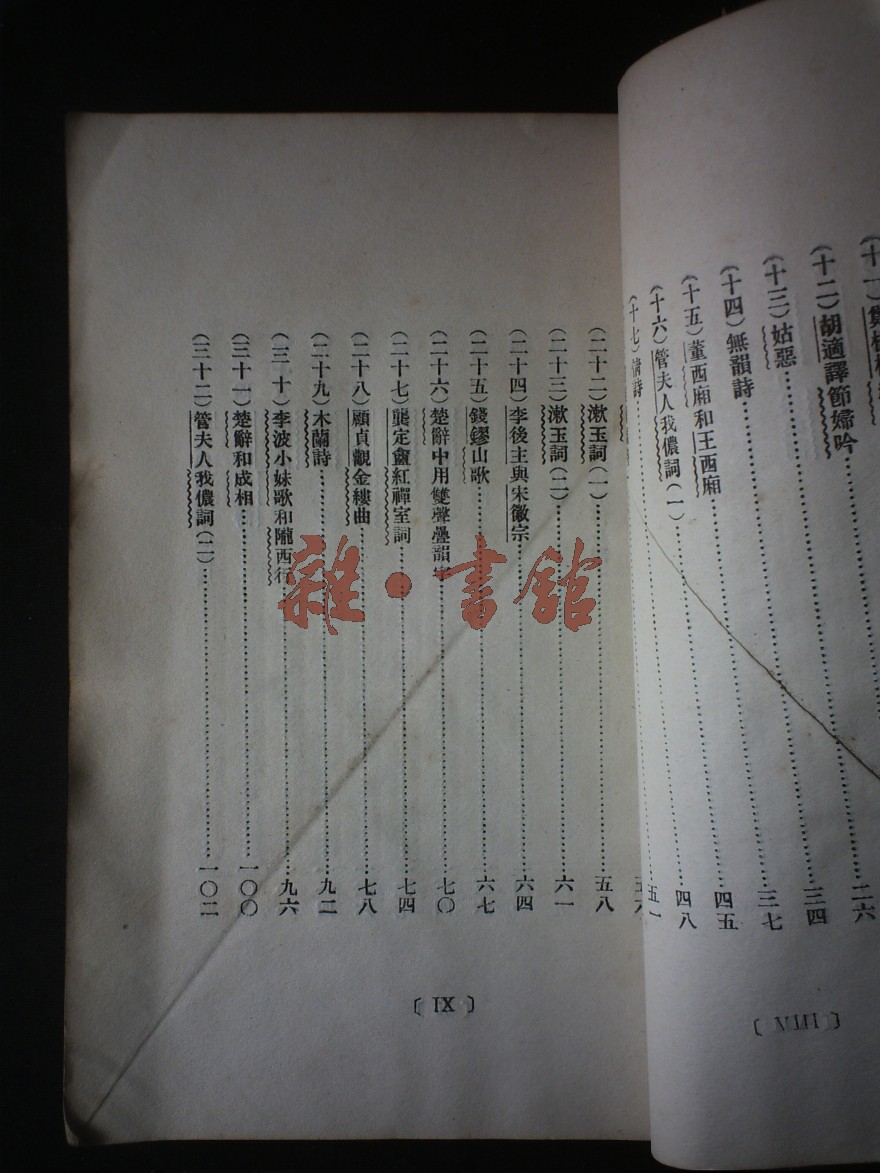 (十二)胡適譯節婦吟……二六
(十三)姑惡……三四
(十四)無韻詩……三七
(十五)董西廂和王西廂……四五
(十六)管夫人我儂詞(一)……四八
(十七)情詩……五一
〔 VIII 〕
(二十二)漱玉詞(一)……五八
(二十三)漱玉詞(二)……六一
(二十四)李後主與宋徽宗……六四
(二十五)錢鏐山歌……六七
(二十六)楚辭中用雙聲疊韻……七〇
(二十七)龔定盦紅禪室詞……七四
(二十八)顧貞觀金縷曲……七八
(二十九)木蘭詩……九二
(三十)李波小妹歌和隴西行……九六
(三十一)楚辭和成相……一〇〇
(三十二)管夫人我儂詞(二)……一〇二
〔 IX 〕
雜·書館